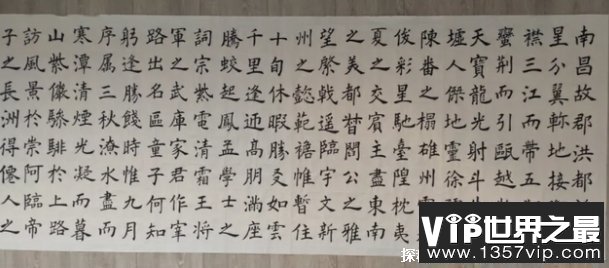 南昌故郡洪都
星分翼軫地接
襟三江而帶五
蠻荊而引甌越
天寶龍光射斗
墟人傑地靈徐
陳蕃之榻雄州
俊彩星馳臺隍枕夷
夏之交賓主盡東南
之美都督閻公之雅
望棨戟遙臨宇文新
州之懿範襜帷暫住
十旬休暇勝友如雲
千里逢迎高朋滿座
騰蛟起鳳孟學士之
詞宗紫電清霜王將
軍之武庫家君作宰
路出名區童子何知
躬逢勝餞時惟九月
序屬三秋潦水盡而
寒潭清煙光凝而暮
山紫儼驂騑於上路
訪風景於崇阿臨帝
子之長洲得僊人之
VIP世界之最
www.1357vip.com